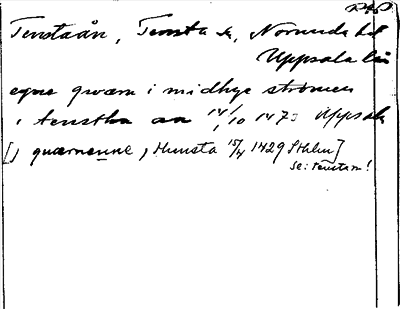 Tenstaån, Tensta sn, Norunda hd
Uppsala län
egne qwærn i midhye strömen
i tenstha aa 14/10 1473 Uppsala
[j quærnenne, Hunsta 15/4 1429 Sthlm]
se: Tenstam!